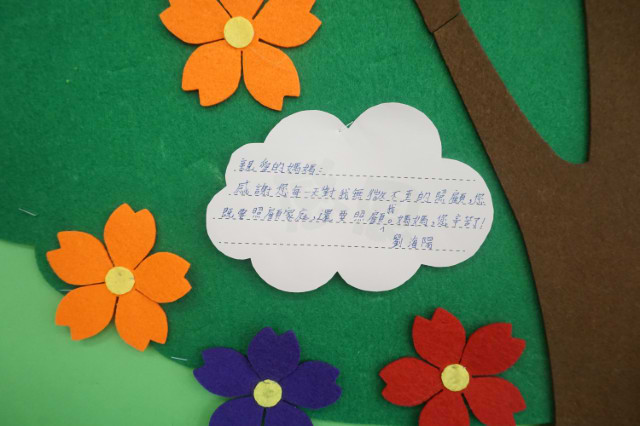 親愛的媽媽：
感謝您每一天對我無微不至的照顧，您
既要照顧家庭，還要照顧我。媽媽，您辛苦了！
劉海陽